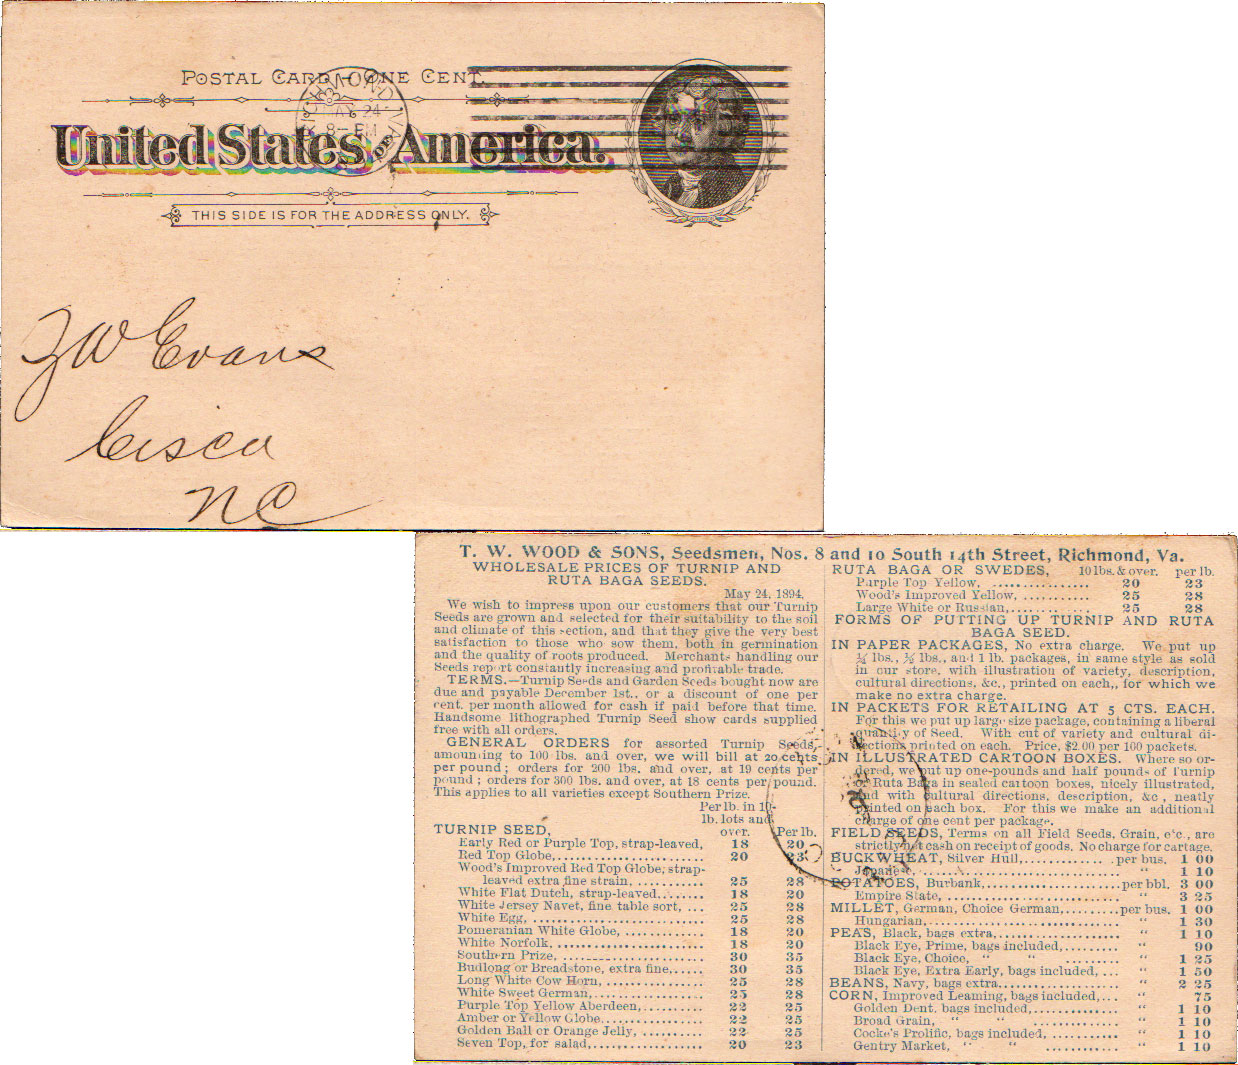 POSTAL CARD – ONE CENT.
United States of America.
THIS SIDE IS FOR THE ADDRESS ONLY.
RICHMOND, VA.
MAY 24
8 – PM
Z W Evans
Cisco
NC
T. W. WOOD & SONS, Seedsmen, Nos. 8 and 10 South 14th Street, Richmond, Va.
WHOLESALE PRICES OF TURNIP AND
RUTA BAGA SEEDS.
May 24, 1894.
We wish to impress upon our customers that our Turnip
Seeds are grown and selected for their suitability to the soil
and climate of this section, and that they give the very best
satisfaction to those who sow them, both in germination
and the quality of roots produced. Merchants handling our
Seeds report constantly increasing and profitable trade.
TERMS.—Turnip Seeds and Garden Seeds bought now are
due and payable December 1st., or a discount of one per
cent. per month allowed for cash if paid before that time.
Handsome lithographed Turnip Seed show cards supplied
free with all orders.
GENERAL ORDERS for assorted Turnip Seeds,
amounting to 100 lbs. and over, we will bill at 20 cents
per pound; orders for 200 lbs. and over, at 19 cents per
pound; orders for 300 lbs. and over, at 18 cents per pound.
This applies to all varieties except Southern Prize.
Per lb. in 10-
lb. lots and
TURNIP SEED, over. Per lb.
Early Red or Purple Top, strap-leaved, 18 20
Red Top Globe,.................... 20 23
Wood's Improved Red Top Globe; strap-
leaved extra fine strain,........... 25 28
White Flat Dutch, strap-leaved,...... 18 20
White Jersey Navet, fine table sort, ... 25 28
White Egg, ........................ 25 28
Pomeranian White Globe, ........... 18 20
White Norfolk, ..................... 18 20
Southern Prize, .................... 30 35
Budlong or Breadstone, extra fine,..... 30 35
Long White Cow Horn, .............. 25 28
White Sweet German,............... 25 28
Purple Top Yellow Aberdeen,......... 22 25
Amber or Yellow Globe.............. 22 25
Golden Ball or Orange Jelly, ......... 22 25
Seven Top, for salad,................ 20 23
RUTA BAGA OR SWEDES, 10 lbs. & over. per lb.
Purple Top Yellow, ............... 20 23
Wood's Improved Yellow, ........... 25 28
Large White or Russian,........... 25 28
FORMS OF PUTTING UP TURNIP AND RUTA
BAGA SEED.
IN PAPER PACKAGES, No extra charge. We put up
¼ lbs., ½ lbs., and 1 lb. packages, in same style as sold
in our store, with illustration of variety, description,
cultural directions, &c., printed on each,, for which we
make no extra charge.
IN PACKETS FOR RETAILING AT 5 CTS. EACH.
For this we put up large size package, containing a liberal
quantity of Seed. With cut of variety and cultural di-
rections printed on each. Price, $2.00 per 100 packets.
IN ILLUSTRATED CARTOON BOXES. Where so or-
dered, we put up one-pounds and half pounds of Turnip
or Ruta Baga in sealed cartoon boxes, nicely illustrated,
and with cultural directions, description, &c., neatly
printed on each box. For this we make an additional
charge of one cent per package.
FIELD SEEDS, Terms on all Field Seeds, Grain, etc., are
strictly net cash on receipt of goods. No charge for cartage.
BUCKWHEAT, Silver Hull,............ per bus. 1 00
Japanese, ........................ " 1 10
POTATOES, Burbank,................. per bbl. 3 00
Empire State, ..................... " 3 25
MILLET, German, Choice German,......... per bus. 1 00
Hungarian,........................ " 1 30
PEAS, Black, bags extra,............... " 1 10
Black Eye, Prime, bags included,......... " 90
Black Eye, Choice, " " ......... " 1 25
Black Eye, Extra Early, bags included, ... " 1 50
BEANS, Navy, bags extra............... " 2 25
CORN, Improved Leaming, bags included,... " 75
Golden Dent, bags included,............ " 1 10
Broad Grain, " " ............ " 1 10
Cocke's Prolific, bags included, ........... " 1 10
Gentry Market, " " ............ " 1 10